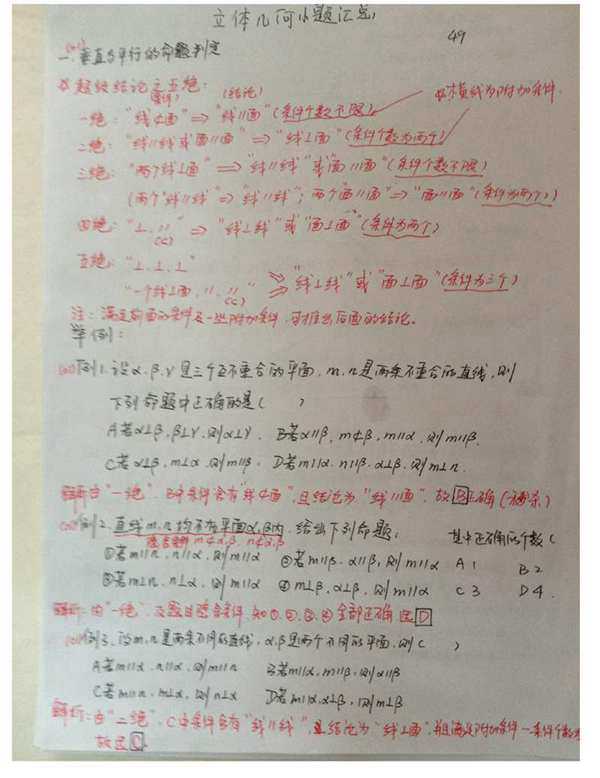 立体几何小题汇总
49
一. 垂直与平行的命题判定
超级结论之五绝:
(条件) (结论)
横线为附加条件
一绝:"线⊄面" ⇒ "线∥面" (条件个数不限)
二绝:"线∥线或面∥面" ⇒ "线⊥面" (条件个数为两个)
三绝:"两个线⊥面" ⇒ "线∥线"或"面∥面" (条件个数不限)
(两个"线∥线" ⇒ "线∥线"; 两个"面∥面" ⇒ "面∥面" (条件为两个)
四绝:"⊥, ∥" ⇒ "线⊥线"或"面⊥面" (条件为两个)
五绝:"⊥.⊥.⊥"
"一个线⊥面, ∥, ∥" ⇒ "线⊥线"或"面⊥面" (条件为三个)
注:满足前面的条件及一些附加条件,可推出后面的结论。
举例:
例1.设α.β.γ是三个互不重合的平面, m.n是两条不重合的直线,则
下列命题中正确的是( )
A若α⊥β,β⊥γ.则α⊥γ. B若α∥β, m⊄β, m∥α.则m∥β.
C若α⊥β, m⊥α.则m∥β. D若m∥α.n∥β.α⊥β.则m⊥n.
解析:由"一绝". B中条件含有"线⊄面",且结论为"线∥面".故B正确(秒杀)
例2.直线m.n均不在平面α,β内.给出下列命题, 其中正确的个数(
隐含条件 m⊄α,β n⊄α,β
①若m∥n.n∥α.则m∥α ②若m∥β.α∥β,则m∥α A 1 B 2
③若m⊥n.n⊥α.则m∥α ④m⊥β,α⊥β,则m∥α C 3 D 4.
解析:由"一绝".及题目隐含条件.知①.②.③.④全部正确选D
例3.设m.n是两条不同的直线,α.β是两个不同的平面,则( )
A若m∥α.n∥α.则m∥n B若m∥α,m∥β,则α∥β
C若m∥n.m⊥α.则n⊥α D若m∥α.α⊥β,则m⊥β
解析:由"二绝".C中条件含有"线∥线",且结论为"线⊥面".并且满足附加条件一条件个数为
故选C